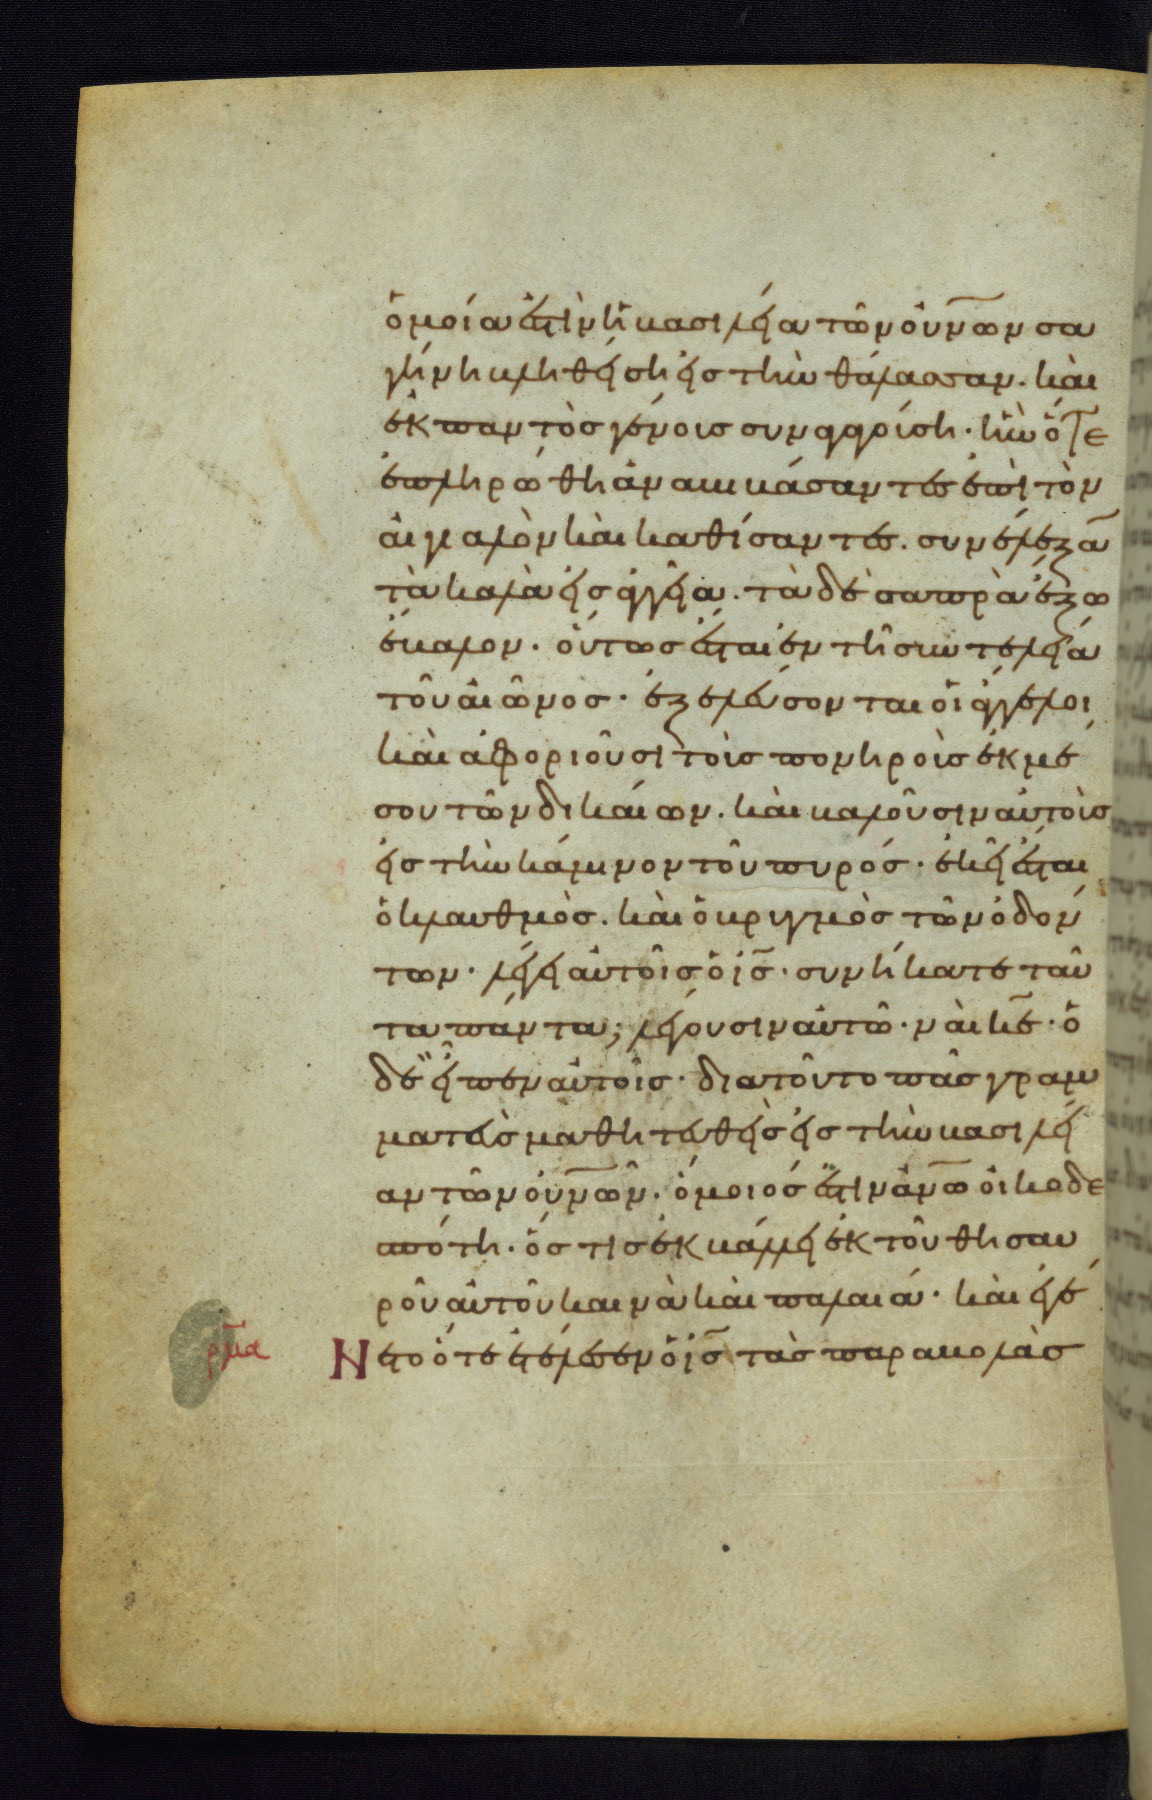 ὁμοία ἐστὶν ἡ βασιλεία τῶν οὐν̅ῶν σα
γήνη βληθείση εἰς τὴν θάλασσαν. καὶ
ἐκ παντὸς γένοις συναγαγοίση. ἣν ὅτε
ἐπληρώθη ἀναβιβάσαντες ἐπὶ τὸν
αἰγιαλὸν καὶ καθίσαντες. συνέλεξα̅
τὰ καλὰ εἰς ἀγγεῖα. τὰ δὲ σαπρὰ ἔξω
ἔβαλον. οὕτως ἔσται ἐν τῆ συντελεία
τοῦ αἰῶνος. ἐξελεύσονται οἱ ἄγγελοι
καὶ ἀφοριοῦσι τοὶς πονηροὶς ἐκ μέ
σου τῶν δικαίων. καὶ βαλοῦσιν αὐτοὶς
εἰς τὴν κάμινον τοῦ πυρός. ἐκεῖ ἔσται
ὁ κλαυθμὸς. καὶ ὁ βρυγμὸς τῶν ὀδόν
των. λέγει αὐτοῖς ὁ ις̅. συνήκατε ταῦ
τα πάντα; λέγουσιν αὐτῶ. ναὶ κε̅. ὁ
δὲ εἶπεν αὐτοῖς. διατοῦντο πᾶς γραμ
ματεὺς μαθητευθεὶς εἰς τὴν βασιλεί
αν τῶν οὐν̅ῶν. ὅμοιός ἐστιν ἀν̅ω οἰκοδε
σπότη. ὅστις ἐκβάλλει ἐκ τοῦ θησαυ
ροῦ αὐτοῦ καινὰ καὶ παλαιά. καὶ ἐγέ
ρμ̅α Νετο ὅτε ἐτέλεσεν ὁ ις̅ τὰς παραβολὰς